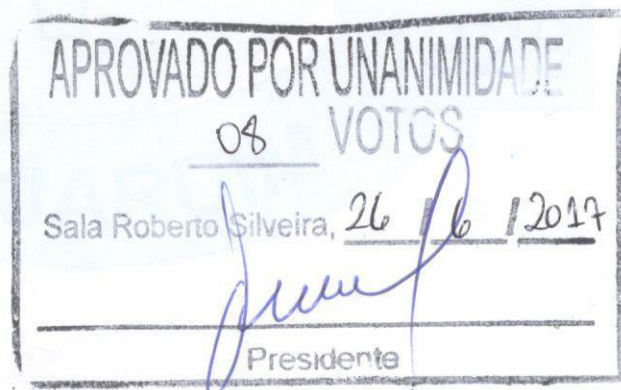 APROVADO POR UNANIMIDADE
08 VOTOS
Sala Roberto Silveira, 26 / 6 / 2017
Presidente